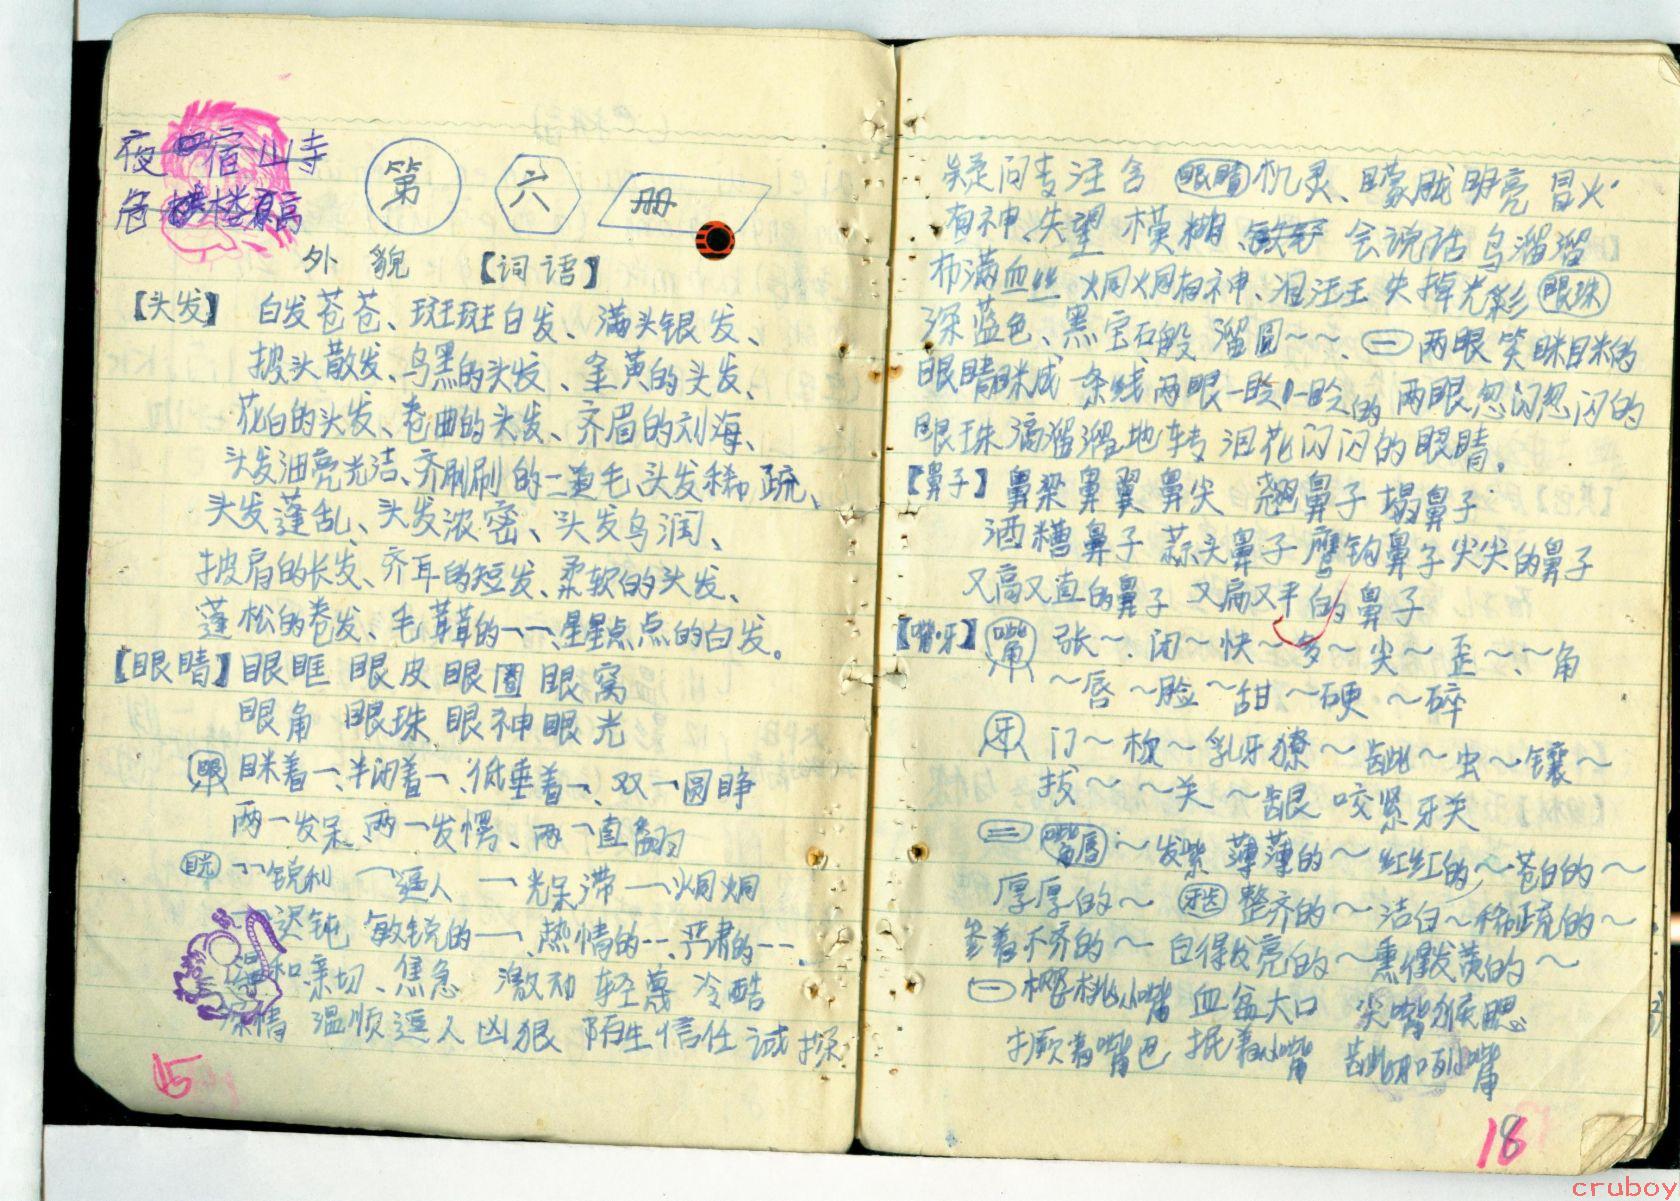 夜宿山寺
危楼高
第六册
外貌【词语】
【头发】白发苍苍、斑斑白发、满头银发、
披头散发、乌黑的头发、金黄的头发、
花白的头发、卷曲的头发、齐眉的刘海、
头发油亮光洁、齐刷刷的二道毛、头发稀疏、
头发蓬乱、头发浓密、头发乌润、
披肩的长发、齐耳的短发、柔软的头发、
蓬松的卷发、毛茸茸的一一、星星点点的白发。
【眼睛】眼眶 眼皮 眼圈 眼窝
眼角 眼珠 眼神 眼光
眼 眯着一、半闭着一、低垂着一、双一圆睁
两一发呆、两一发愣、两一直翻
目光 一一锐利 一逼人 一光呆滞 一炯炯
一迟钝 敏锐的一一、热情的一一、严肃的一一、
温和亲切、焦急 激动 轻蔑 冷酷
深情 温顺 逼人 凶狠 陌生 信任 诚 探
疑问 专注 含 眼睛 机灵、朦胧 明亮 冒火
有神、失望 模糊、会说话 乌溜溜
布满血丝 炯炯有神、泪汪汪 失掉光彩 眼珠
深蓝色、黑宝石般 溜圆～～、㊀ 两眼笑眯眯的
眼睛眯成一条线 两眼一眨一眨的 两眼忽闪忽闪的
眼珠滴溜溜地转 泪花闪闪的眼睛。
【鼻子】鼻梁 鼻翼 鼻尖 翘鼻子 塌鼻子
酒糟鼻子 蒜头鼻子 鹰钩鼻子 尖尖的鼻子
又高又直的鼻子 又扁又平的鼻子
【嘴·牙】嘴 张～、闭～ 快～ 多～ 尖～ 歪～、～角
～唇 ～脸 ～甜 ～硬 ～碎
牙 门～ 板～ 乳牙 獠～ 龇～ 虫～ 镶～
拔～ ～关 ～龈 咬紧牙关
㊁ 嘴唇 ～发紫 薄薄的～ 红红的～ 苍白的～
厚厚的～ 牙齿 整齐的～ 洁白～ 稀疏的～
参差不齐的～ 白得发亮的～ 熏得发黄的～
㊀ 樱桃小嘴 血盆大口 尖嘴猴腮
撅着嘴巴 抿着小嘴 龇牙咧嘴
15
18
cruboy